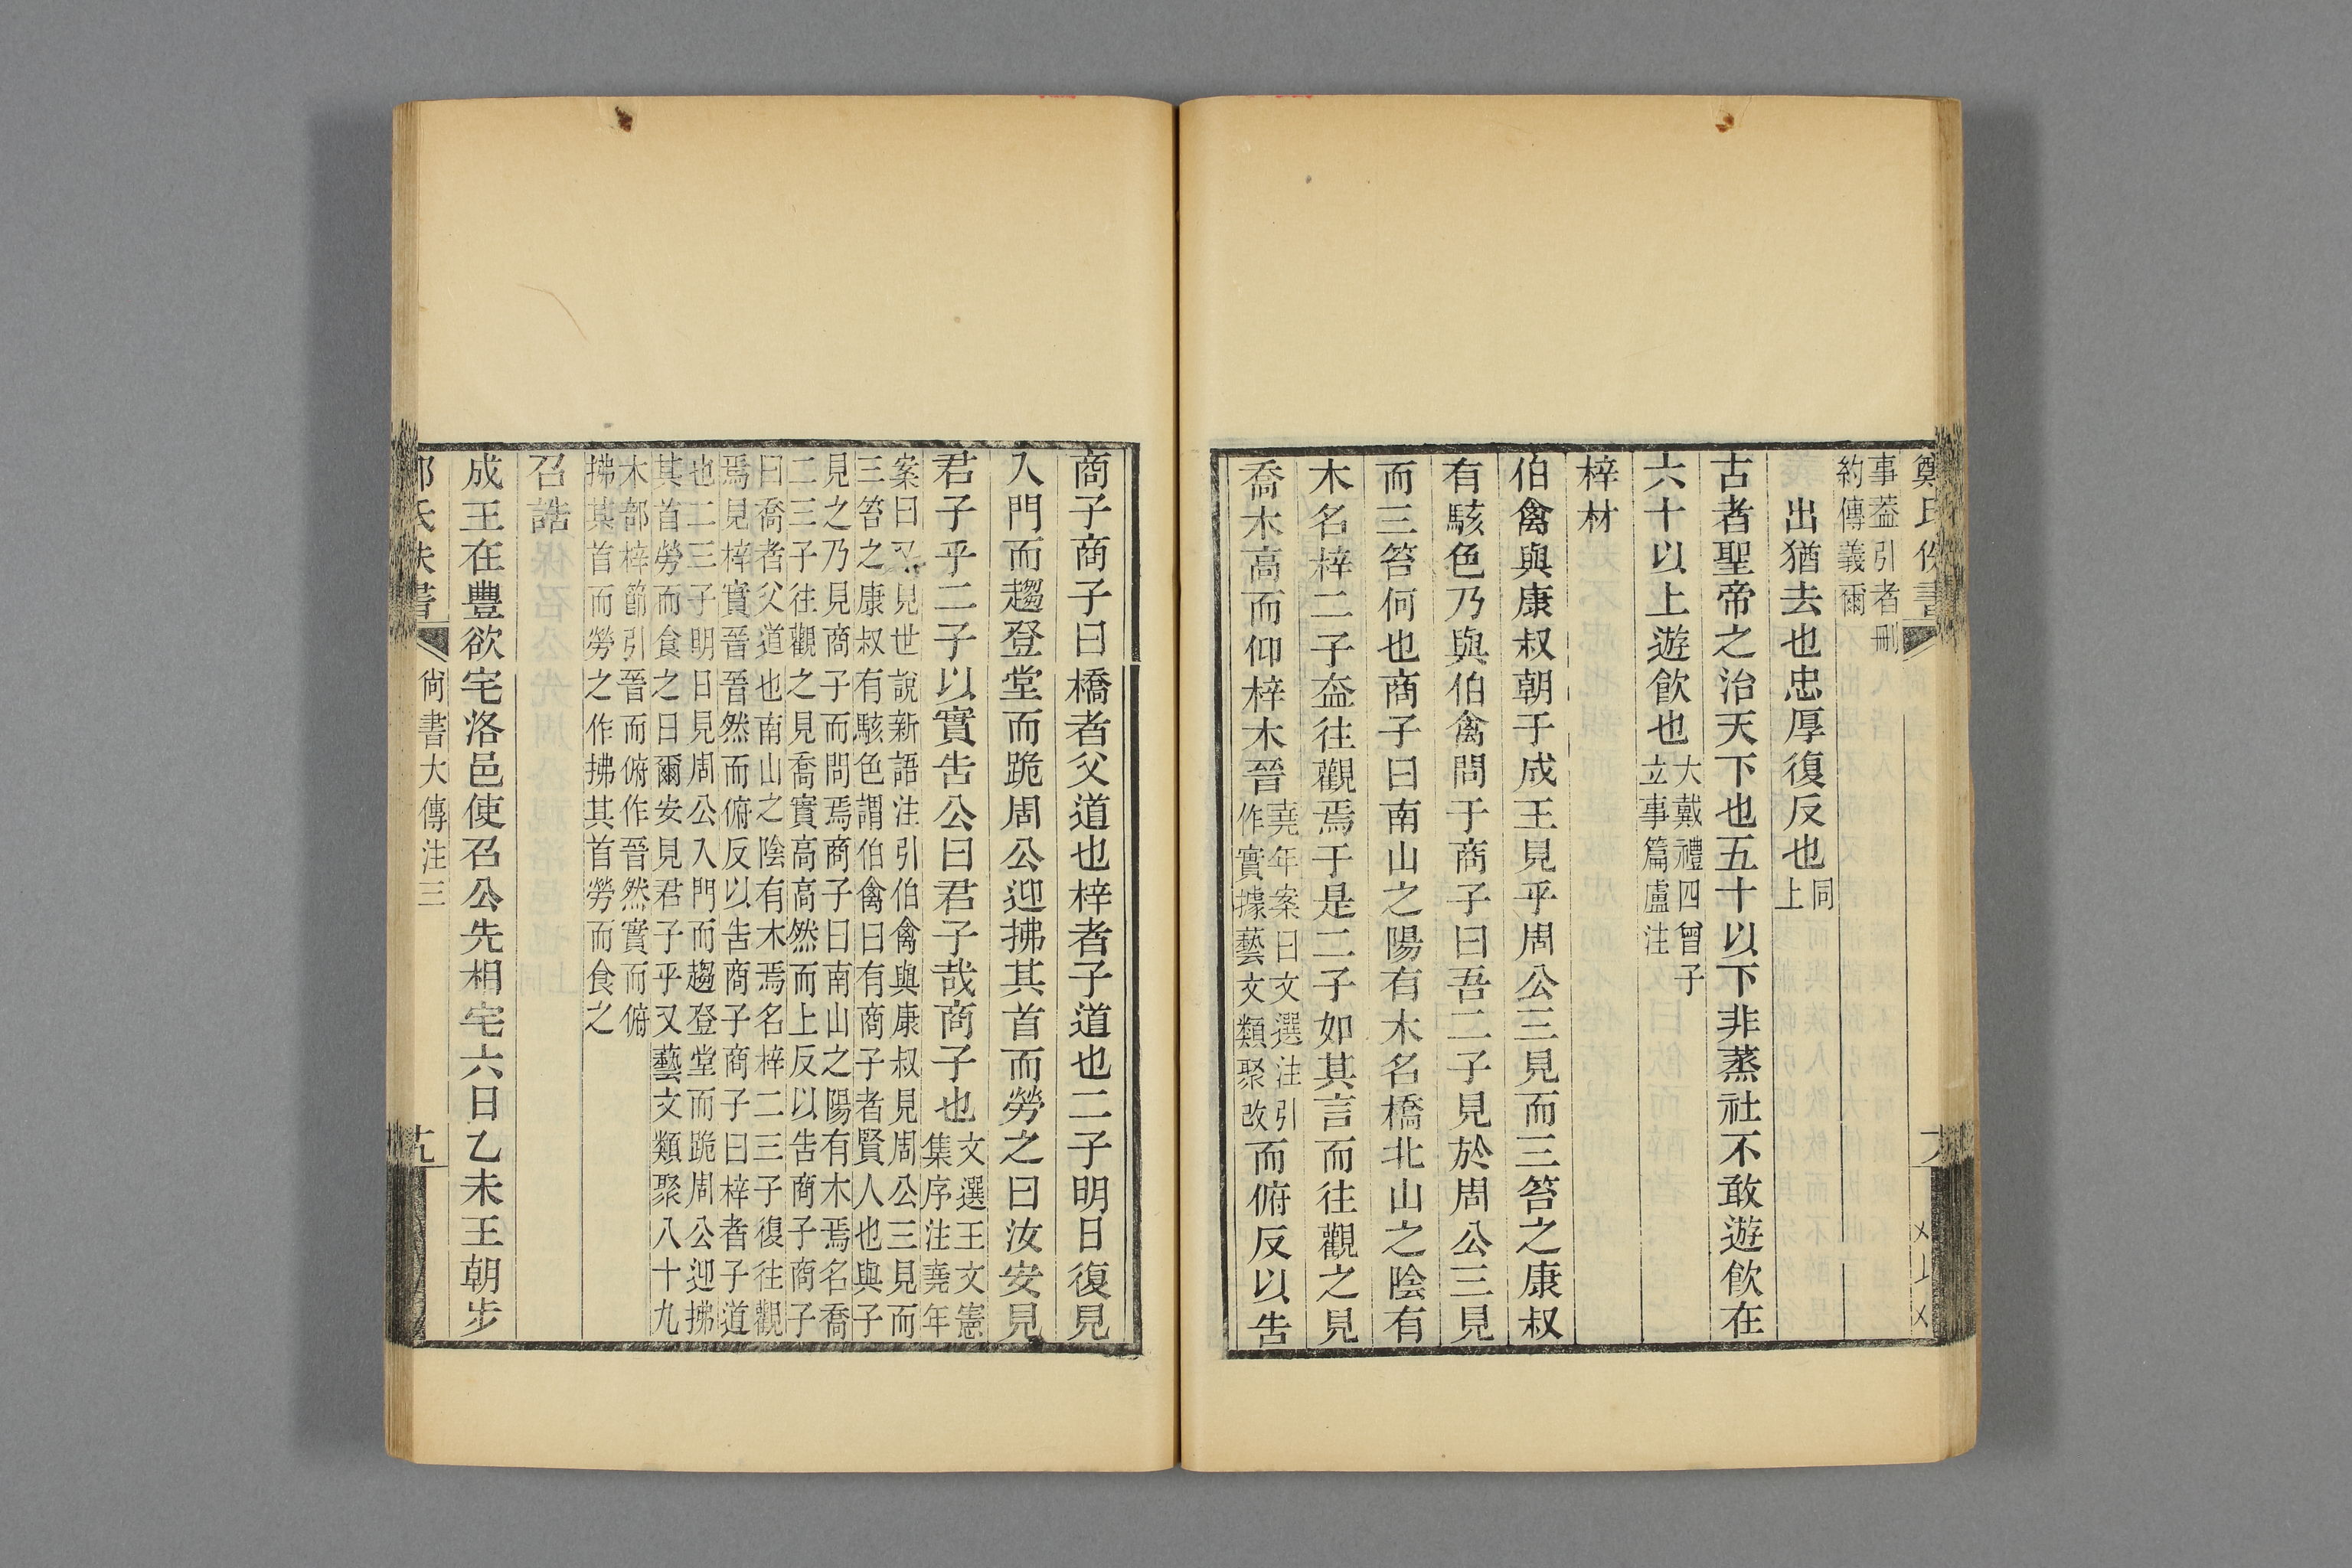 事蓋引者刪
約傳義爾
出猶去也忠厚復反也同上
古者聖帝之治天下也五十以下非蒸社不敢遊飲在
六十以上遊飲也大戴禮四曾子立事篇盧注
梓材
伯禽與康叔朝于成王見乎周公三見而三笞之康叔
有駭色乃與伯禽問于商子曰吾二子見於周公三見
而三笞何也商子曰南山之陽有木名橋北山之陰有
木名梓二子盍往觀焉于是二子如其言而往觀之見
喬木高而仰梓木晉堯年案曰文選注引作實據藝文類聚改而俯反以告
商子商子曰橋者父道也梓者子道也二子明日復見
入門而趨登堂而跪周公迎拂其首而勞之曰汝安見
君子乎二子以實告公曰君子哉商子也文選王文憲集序注堯年
案曰又見世說新語注引伯禽與康叔見周公三見而
三笞之康叔有駭色謂伯禽曰有商子者賢人也與子
見之乃見商子而問焉商子曰南山之陽有木焉名喬
二三子往觀之見喬實高高然而上反以告商子商子
曰喬者父道也南山之陰有木焉名梓二三子復往觀
焉見梓實晉晉然而俯反以告商子商子曰梓者子道
也二三子明日見周公入門而趨登堂而跪周公迎拂
其首勞而食之曰爾安見君子乎又藝文類聚八十九
木部梓節引晉而俯作晉然實而俯
拂其首而勞之作拂其首勞而食之
召誥
成王在豐欲宅洛邑使召公先相宅六日乙未王朝步
尙書大傳注三